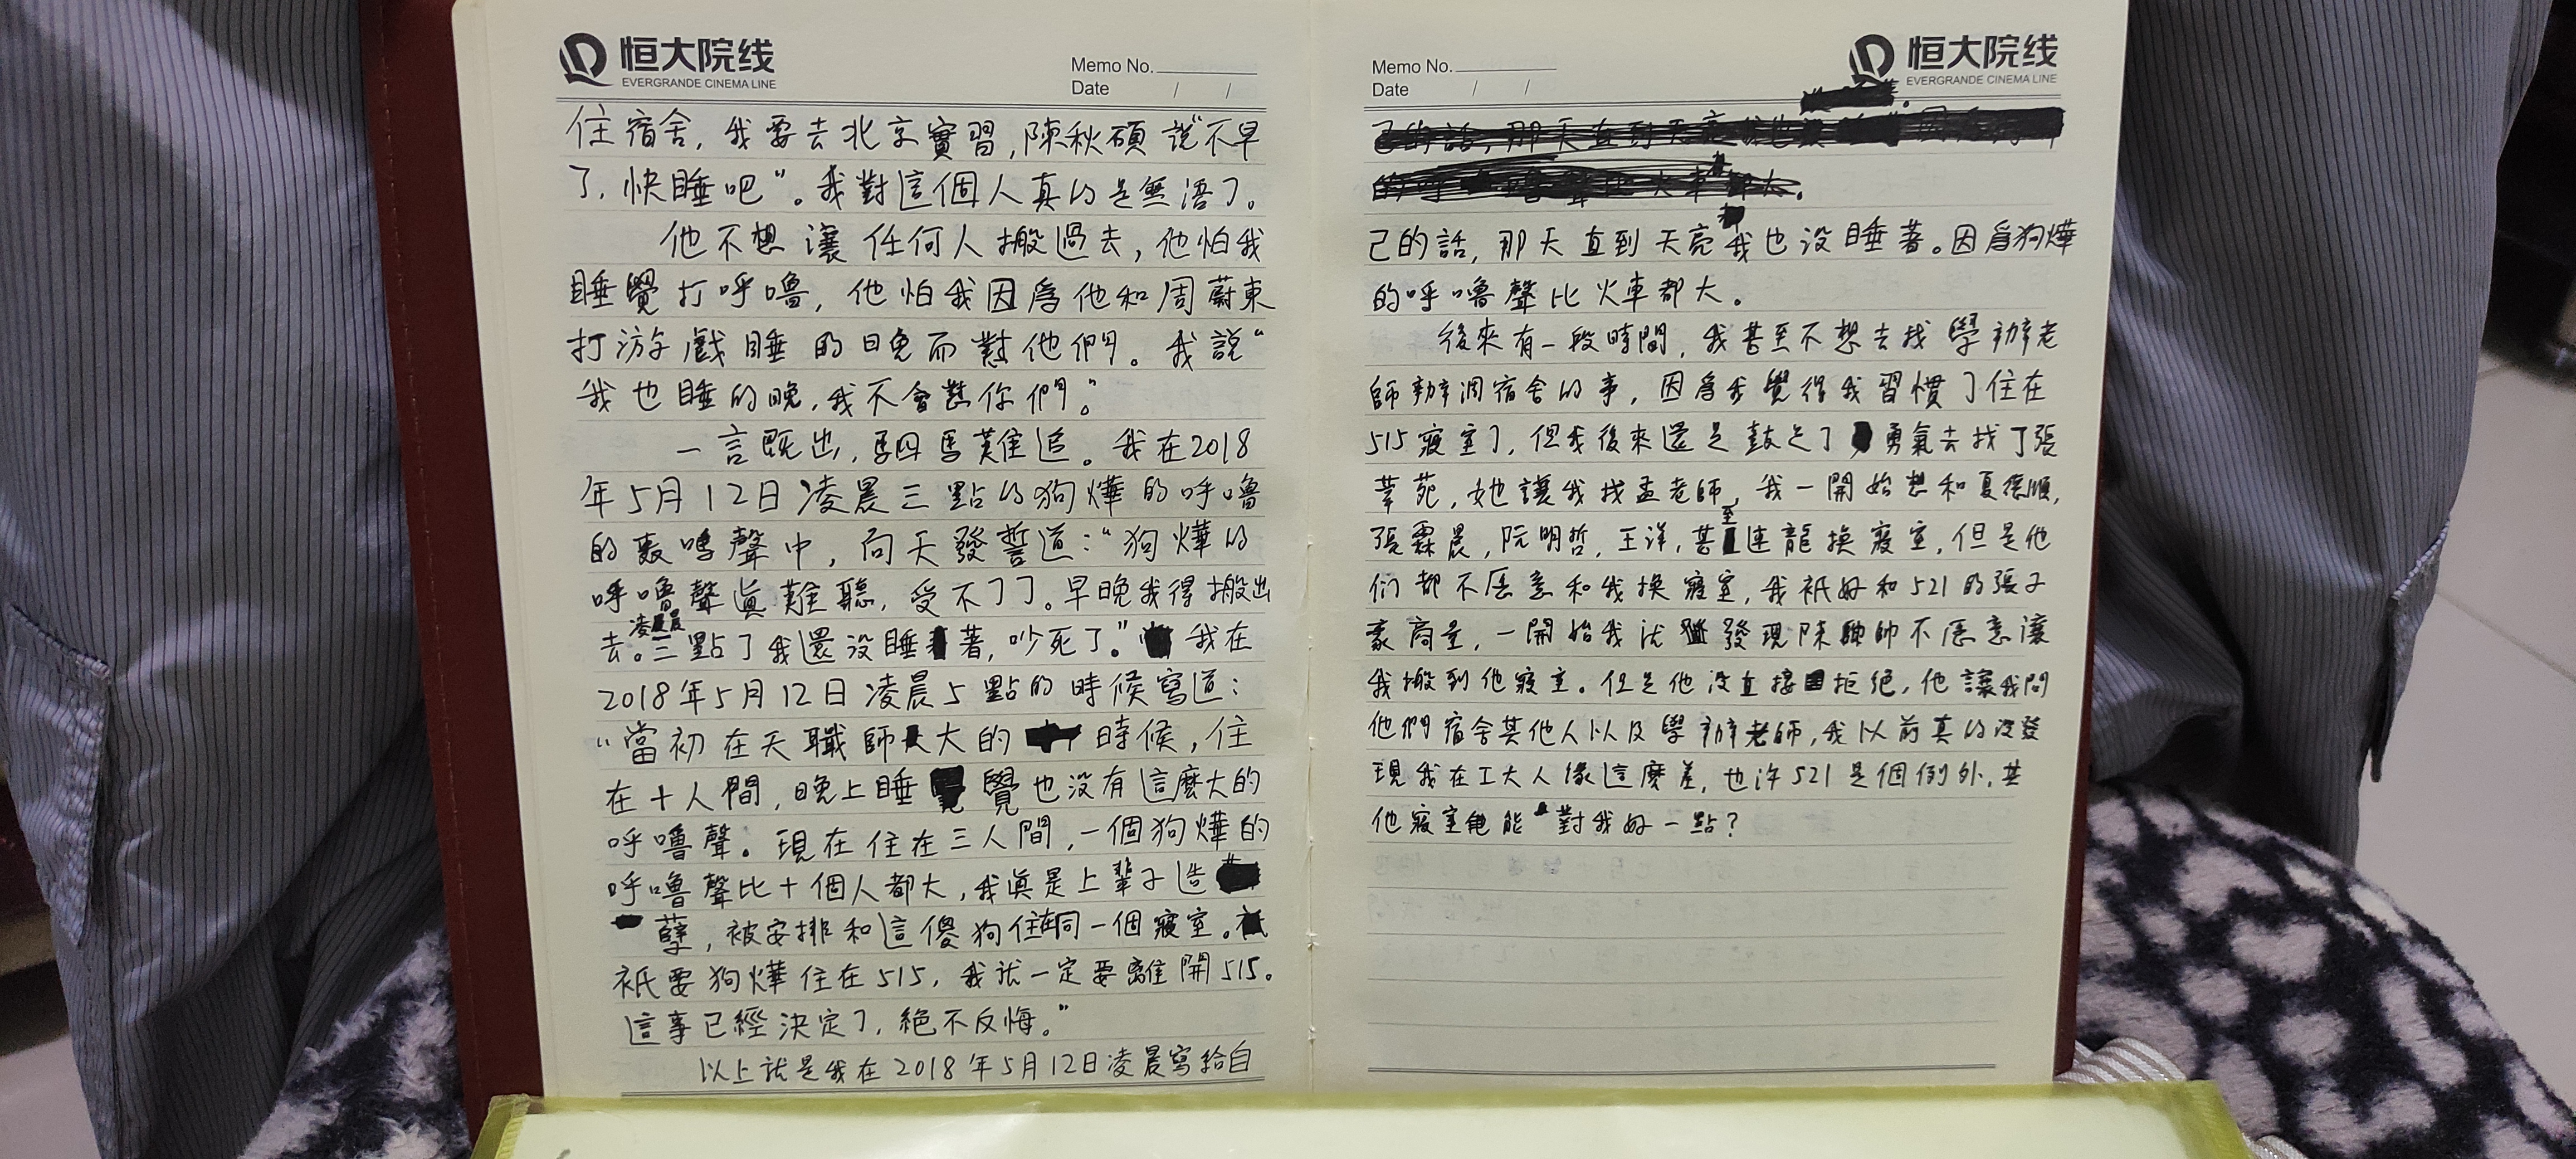 恒大院线
EVERGRANDE CINEMA LINE
Memo No.
Date / /
住宿舍,我要去北京實習,陳秋碩說"不早
了,快睡吧"。我對這個人真的是無語了。
他不想讓任何人搬過去,他怕我
睡覺打呼嚕,他怕我因爲他和周蔚東
打游戲睡的晚而懟他們。我說"
我也睡的晚,我不會懟你們。"
一言既出,駟馬難追。我在2018
年5月12日凌晨三點的狗燁的呼嚕
的轰鳴聲中,向天發誓道:"狗燁的
呼嚕聲真難聽,受不了了。早晚我得搬出
去。凌晨三點了我還没睡著,吵死了。"我在
2018年5月12日凌晨5點的時候寫道:
"當初在天職師大的時候,住
在十人間,晚上睡覺也没有這麼大的
呼嚕聲。現在住在三人間,一個狗燁的
呼嚕聲比十個人都大,我真是上輩子造
孽,被安排和這傻狗住在同一個寢室。
衹要狗燁住在515,我就一定要離開515。
這事已經決定了,絕不反悔。"
以上就是我在2018年5月12日凌晨寫給自
恒大院线
EVERGRANDE CINEMA LINE
Memo No.
Date / /
己的話,那天直到天亮
己的話,那天直到天亮我也没睡著。因爲狗燁
的呼嚕聲比火車都大。
後來有一段時間,我甚至不想去找學辦老
師辦調宿舍的事,因爲我覺得我習慣了住在
515寢室了,但我後來還是鼓足了勇氣去找了張
苑,她讓我找孟老師,我一開始想和夏德順,
張霖晨,阮明哲,王洋,甚至連龍換寢室,但是他
们都不愿意和我換寢室,我衹好和521的張子
豪商量,一開始我就發現陳帥不愿意讓
我搬到他寢室。但是他没直接拒絕,他讓我問
他們宿舍其他人以及學辦老師,我以前真的没發
現我在工大人缘這麼差,也许521是個例外,其
他寢室能對我好一點?